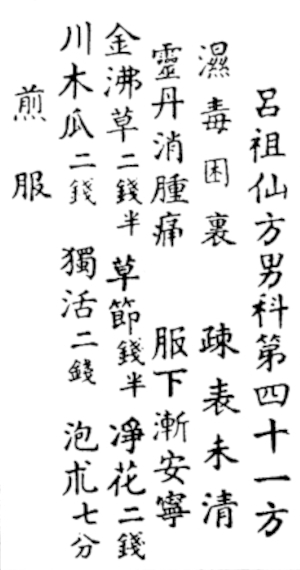 呂祖仙方男科第四十一方
濕毒困裏 疎表未清
靈丹消腫痛 服下漸安寧
金沸草二錢半 草節錢半 淨花二錢
川木瓜二錢 獨活二錢 泡朮七分
煎服